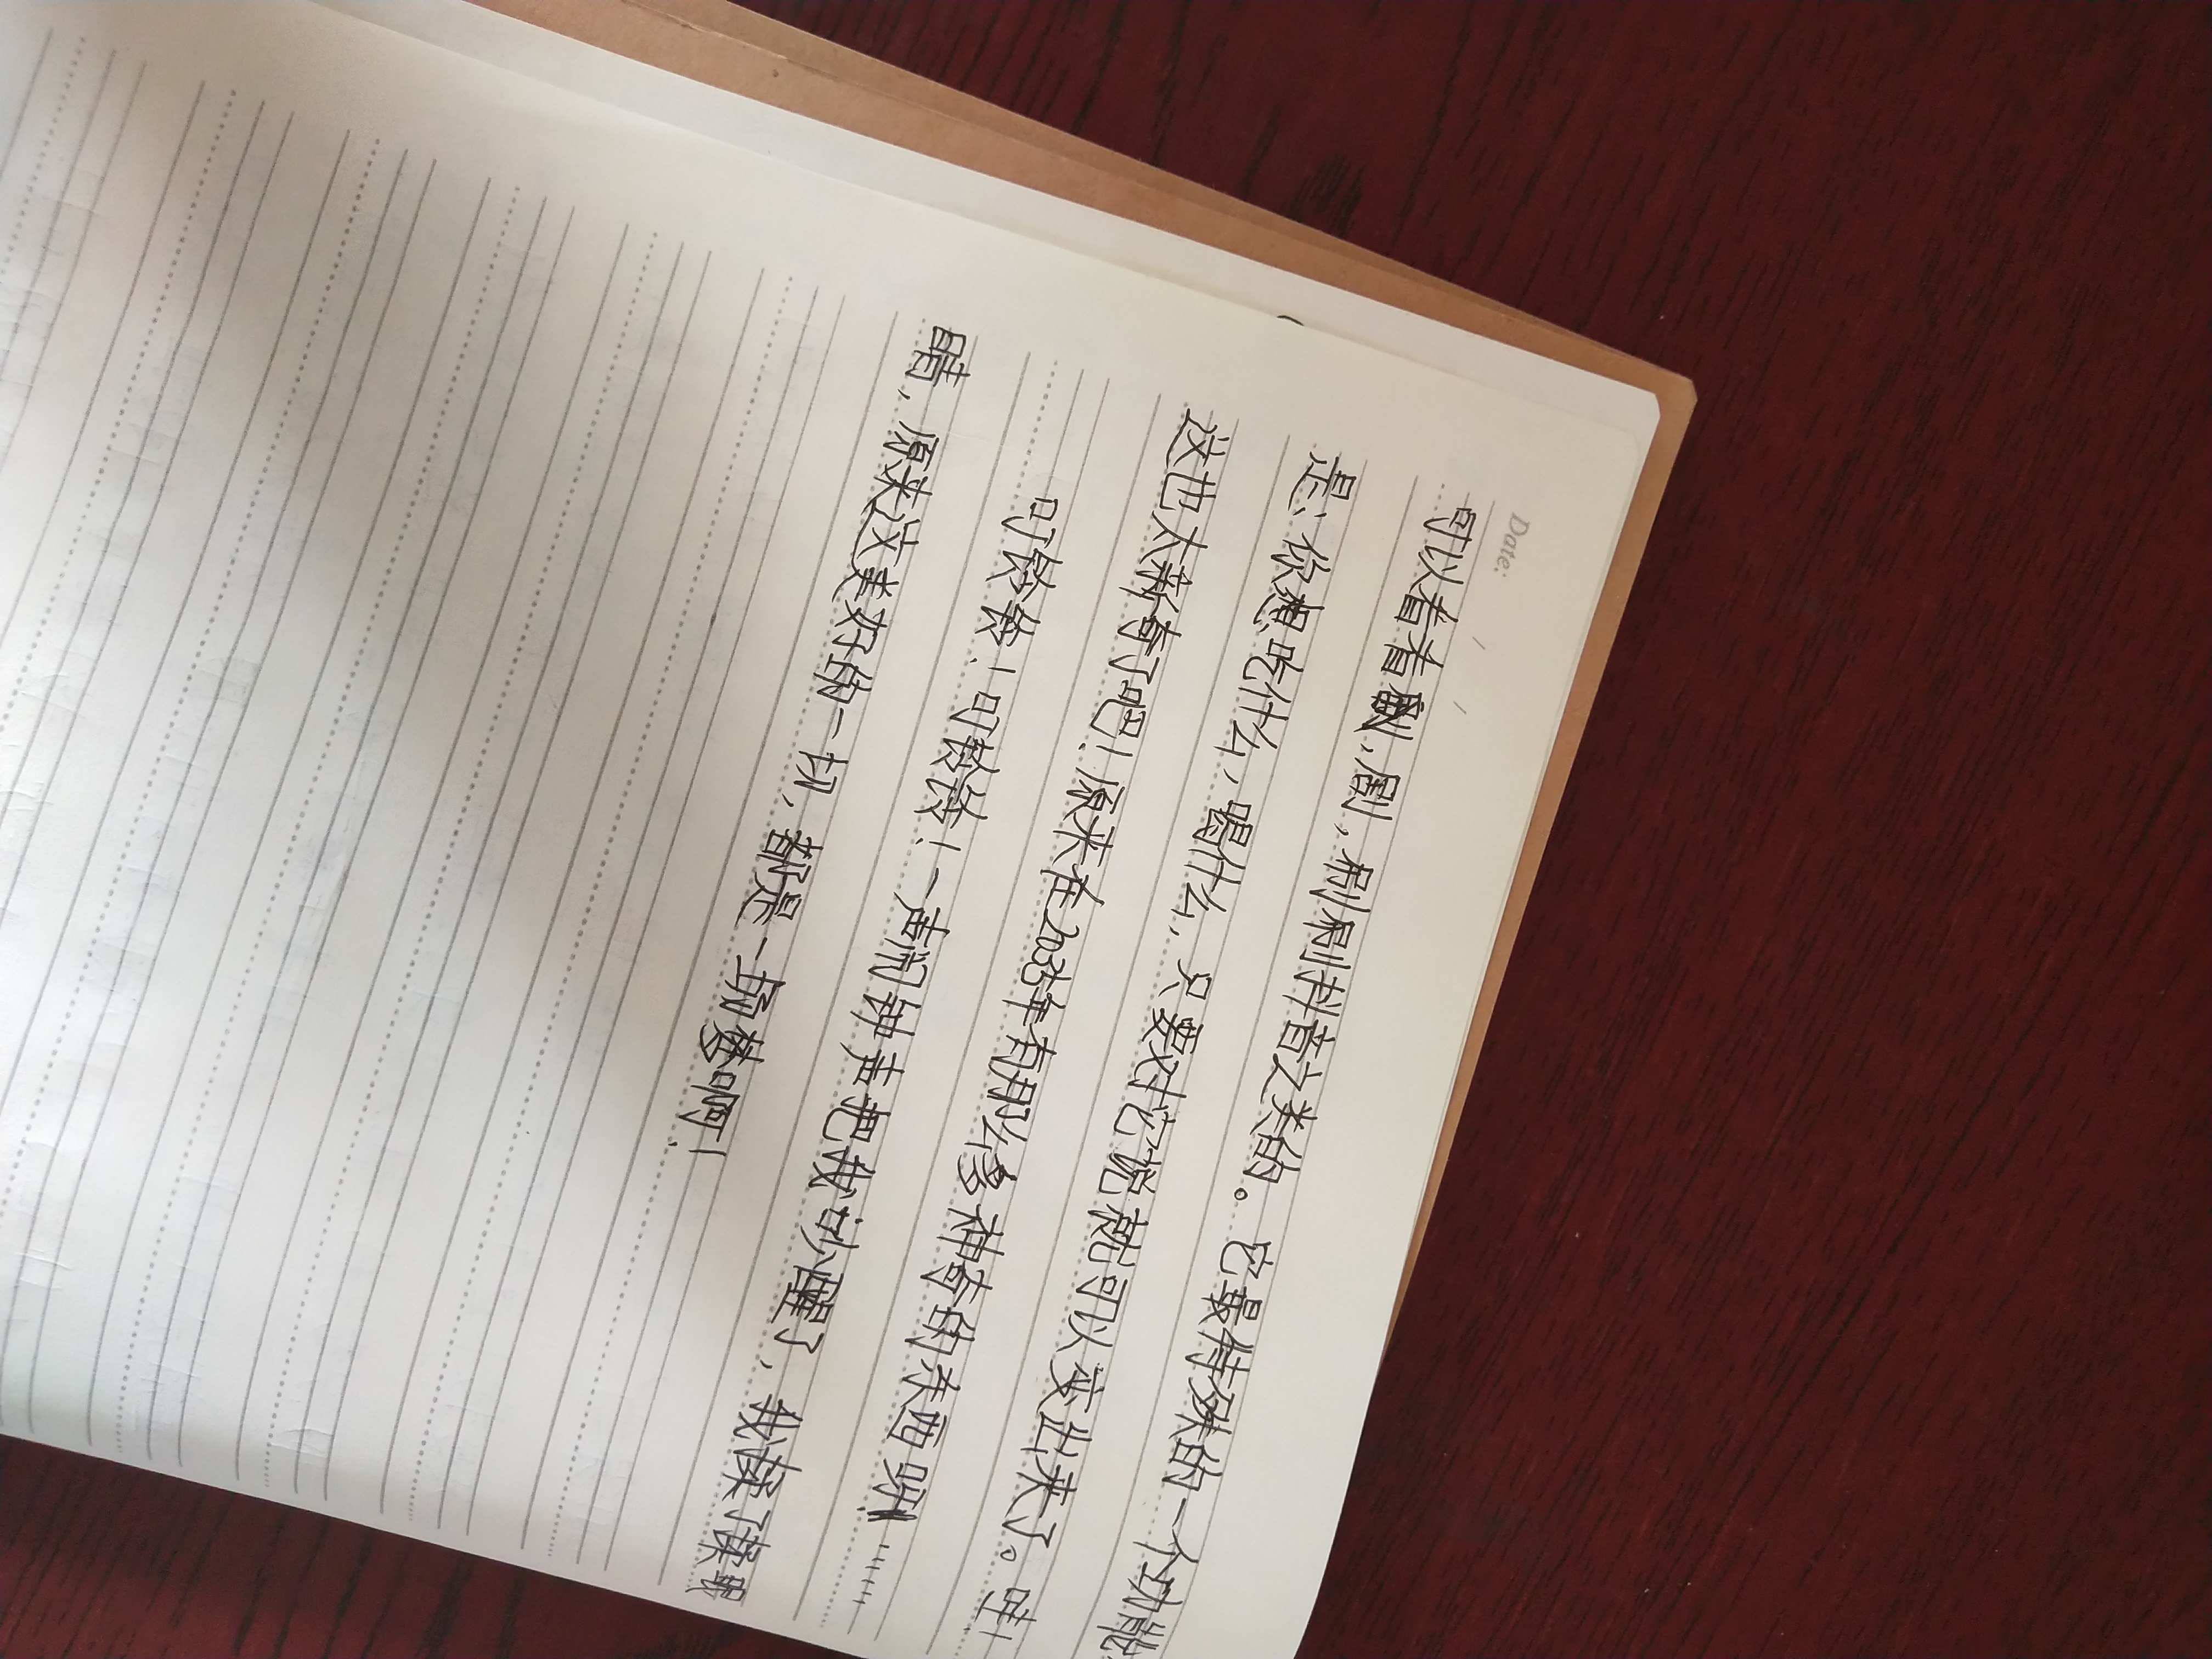 Date:
可以看看剧,剧,刷刷抖音之类的。它最特殊的一个功能
是:你想吃什么,喝什么,只要对它说就可以变出来了。哇!
这也太新奇了吧!原来在2035年有那么多神奇的东西呀!……
叮铃铃!叮铃铃!一声闹钟声把我吵醒了,我揉了揉眼
睛,原来这美好的一切,都是一场梦啊!